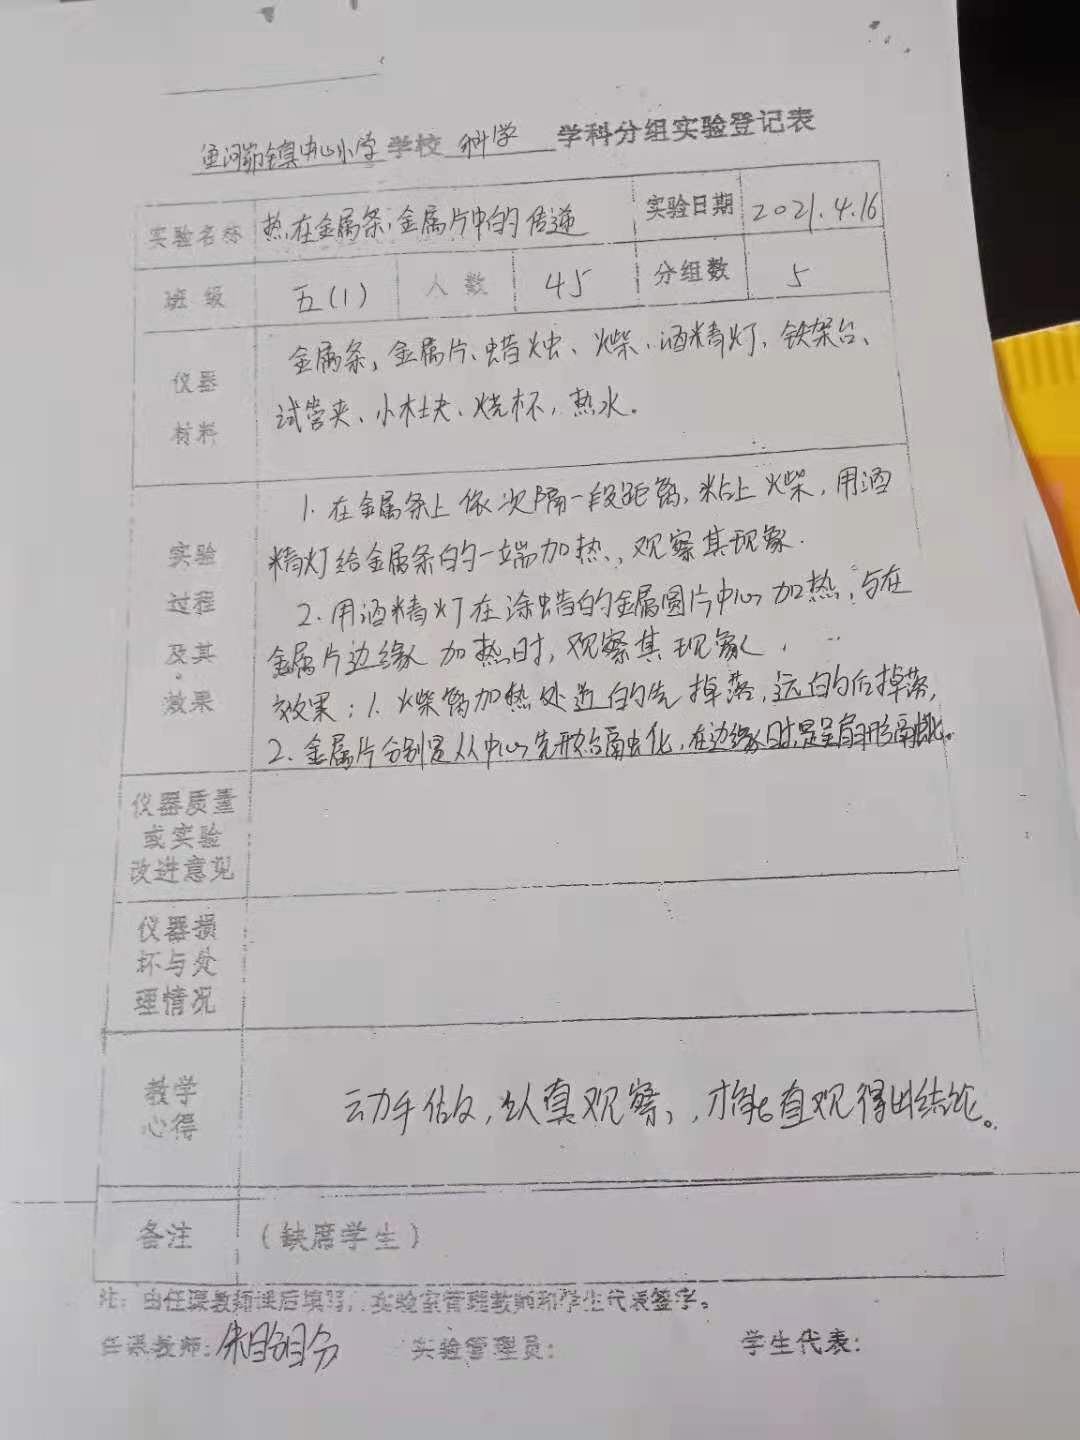 渔河峁镇中心小学 学校 科学 学科分组实验登记表
实验名称 热在金属条、金属片中的传递 实验日期 2021.4.16
班级 五(1) 人数 45 分组数 5
仪器
材料
金属条、金属片、蜡烛、火柴、酒精灯、铁架台、
试管夹、小木夫、烧杯,热水。
实验
过程
及其
效果
1.在金属条上依次隔一段距离,粘上火柴,用酒
精灯给金属条的一端加热、,观察其现象.
2.用酒精灯在涂蜡的金属圆片中心加热,与在
金属片边缘加热时,观察其现象.
效果:1.火柴离加热处近的先掉落,远的后掉落,
2.金属片分别是从中心先开始融化,在边缘时是呈扇形融化。
仪器质量
或实验
改进意见
仪器损
坏与处
理情况
教学
心得
动手做,认真观察、,才能直观得出结论。
备注 (缺席学生)
注:由任课教师课后填写,实验室管理教师和学生代表签字。
任课教师: 实验管理员: 学生代表: